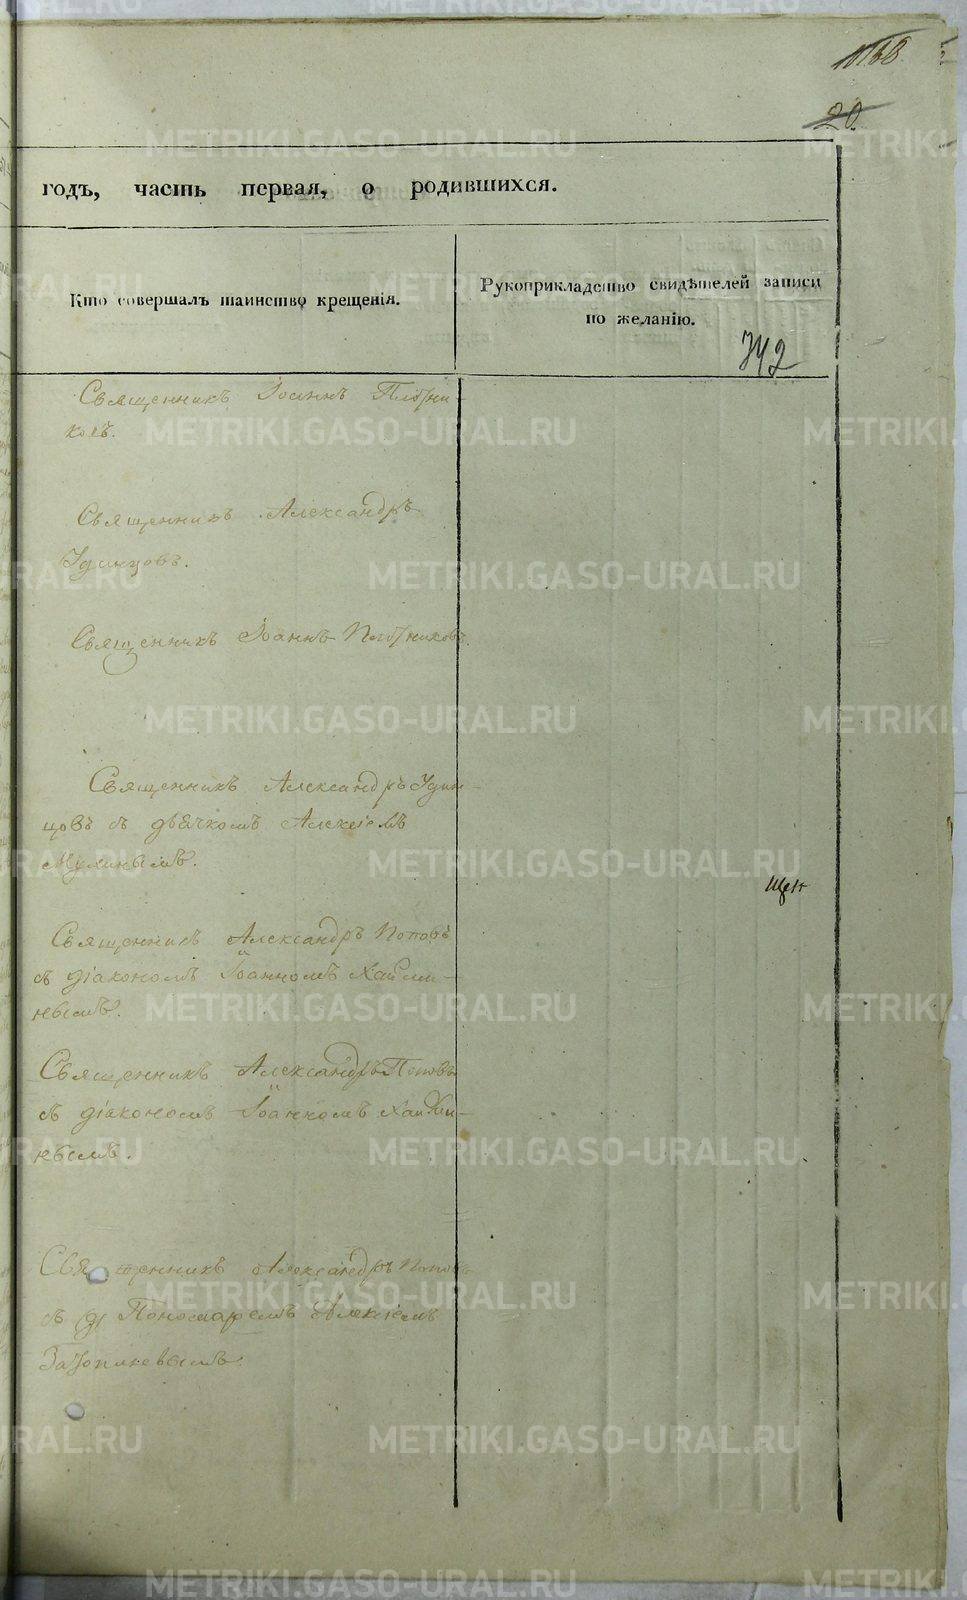 20
годъ, часть первая, о родившихся.
Кто совершалъ таинство крещенія.
Рукоприкладство свидѣтелей записи
по желанію.
342
Священникъ Іоаннъ Плотни-
ковъ.
Священникъ Александръ
Удинцовъ.
Священникъ Іоаннъ Плотниковъ
Священникъ Александръ Удин-
цовъ съ дьячкомъ Алексіемъ
Мулинымъ.
Священникъ Александръ Поповъ
съ діакономъ Іоанномъ
нымъ.
Священникъ Александръ Поповъ
съ діакономъ Іоанномъ
нымъ.
Священникъ Александръ Поповъ
съ Пономаремъ Алексіемъ
METRIKI.GASO-URAL.RU